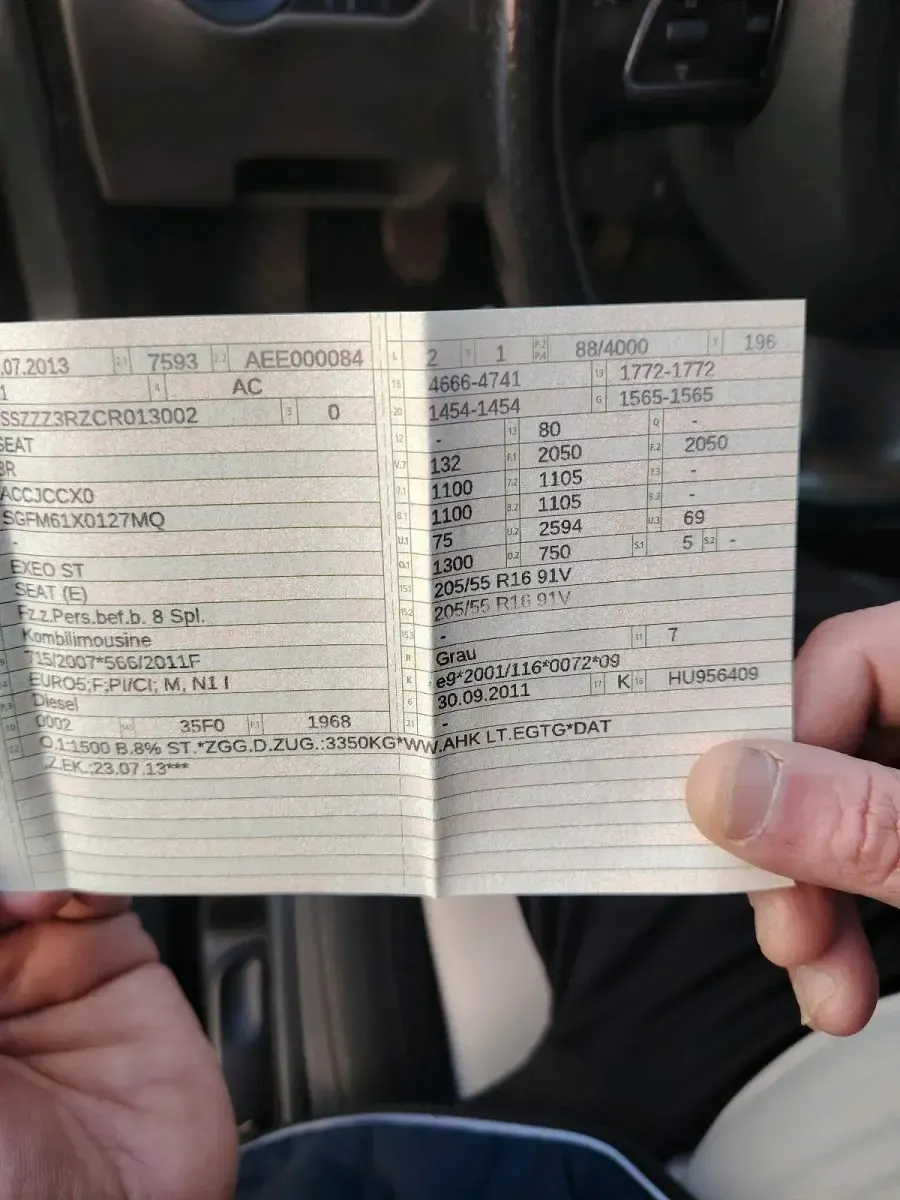 .07.2013 2.1 7593 2.2 AEE000084
1 4 AC
SSZZZ3RZCR013002 3 0
SEAT
3R
ACCJCCX0
SGFM61X0127MQ
-
EXEO ST
SEAT (E)
Fz.z.Pers.bef.b. 8 Spl.
Kombilimousine
715/2007*566/2011F
EURO5;F;PI/CI; M, N1 I
P.3 Diesel
10 0002 35F0 P.1 1968
22 O.1:1500 B.8% ST.*ZGG.D.ZUG.:3350KG*WW.AHK LT.EGTG*DAT
.Z.EK.:23.07.13***
L 2 9 1 P.2 P.4 88/4000 T 196
18 4666-4741 19 1772-1772
20 1454-1454 G 1565-1565
12 - 13 80 Q -
V.7 132 F.1 2050 F.2 2050
7.1 1100 7.2 1105 7.3 -
8.1 1100 8.2 1105 8.3 -
U.1 75 U.2 2594 U.3 69
O.1 1300 O.2 750 S.1 5 S.2 -
15.1 205/55 R16 91V
15.2 205/55 R16 91V
15.3 -
R Grau 11 7
K e9*2001/116*0072*09
6 30.09.2011 17 K 16 HU956409
21 -